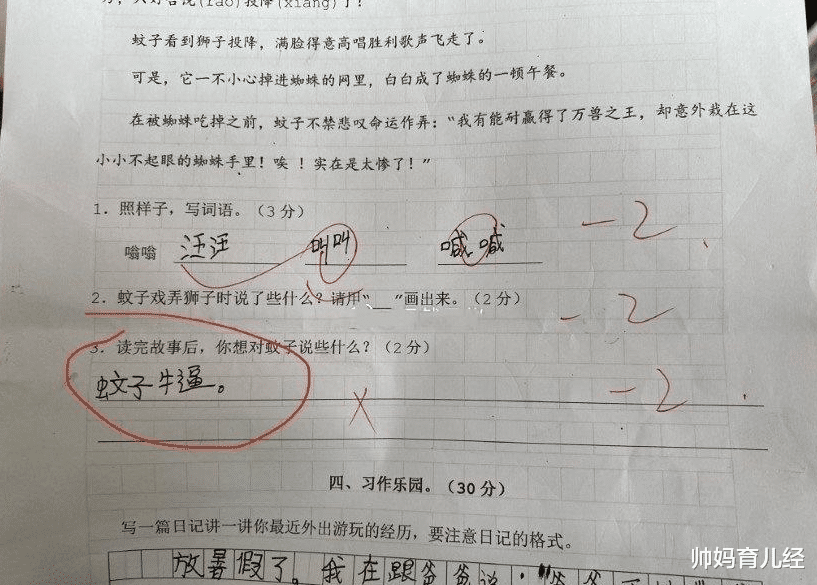 只好告饶(ráo)投降(xiáng)了!
蚊子看到狮子投降,满脸得意高唱胜利歌声飞走了。
可是,它一不小心掉进蜘蛛的网里,白白成了蜘蛛的一顿午餐。
在被蜘蛛吃掉之前,蚊子不禁悲叹命运作弄:“我有能耐赢得了万兽之王,却意外栽在这
小小不起眼的蜘蛛手里!唉!实在是太惨了!”
1.照样子,写词语。(3分)
嗡嗡 汪汪 叫叫 喊喊 -2
2.蚊子戏弄狮子时说了些什么?请用“__”画出来。(2分) -2
3.读完故事后,你想对蚊子说些什么?(2分)
蚊子牛逼。 × -2
四、习作乐园。(30分)
写一篇日记讲一讲你最近外出游玩的经历,要注意日记的格式。
放暑假了。我在跟爸爸说:“爸爸
帅妈育儿经